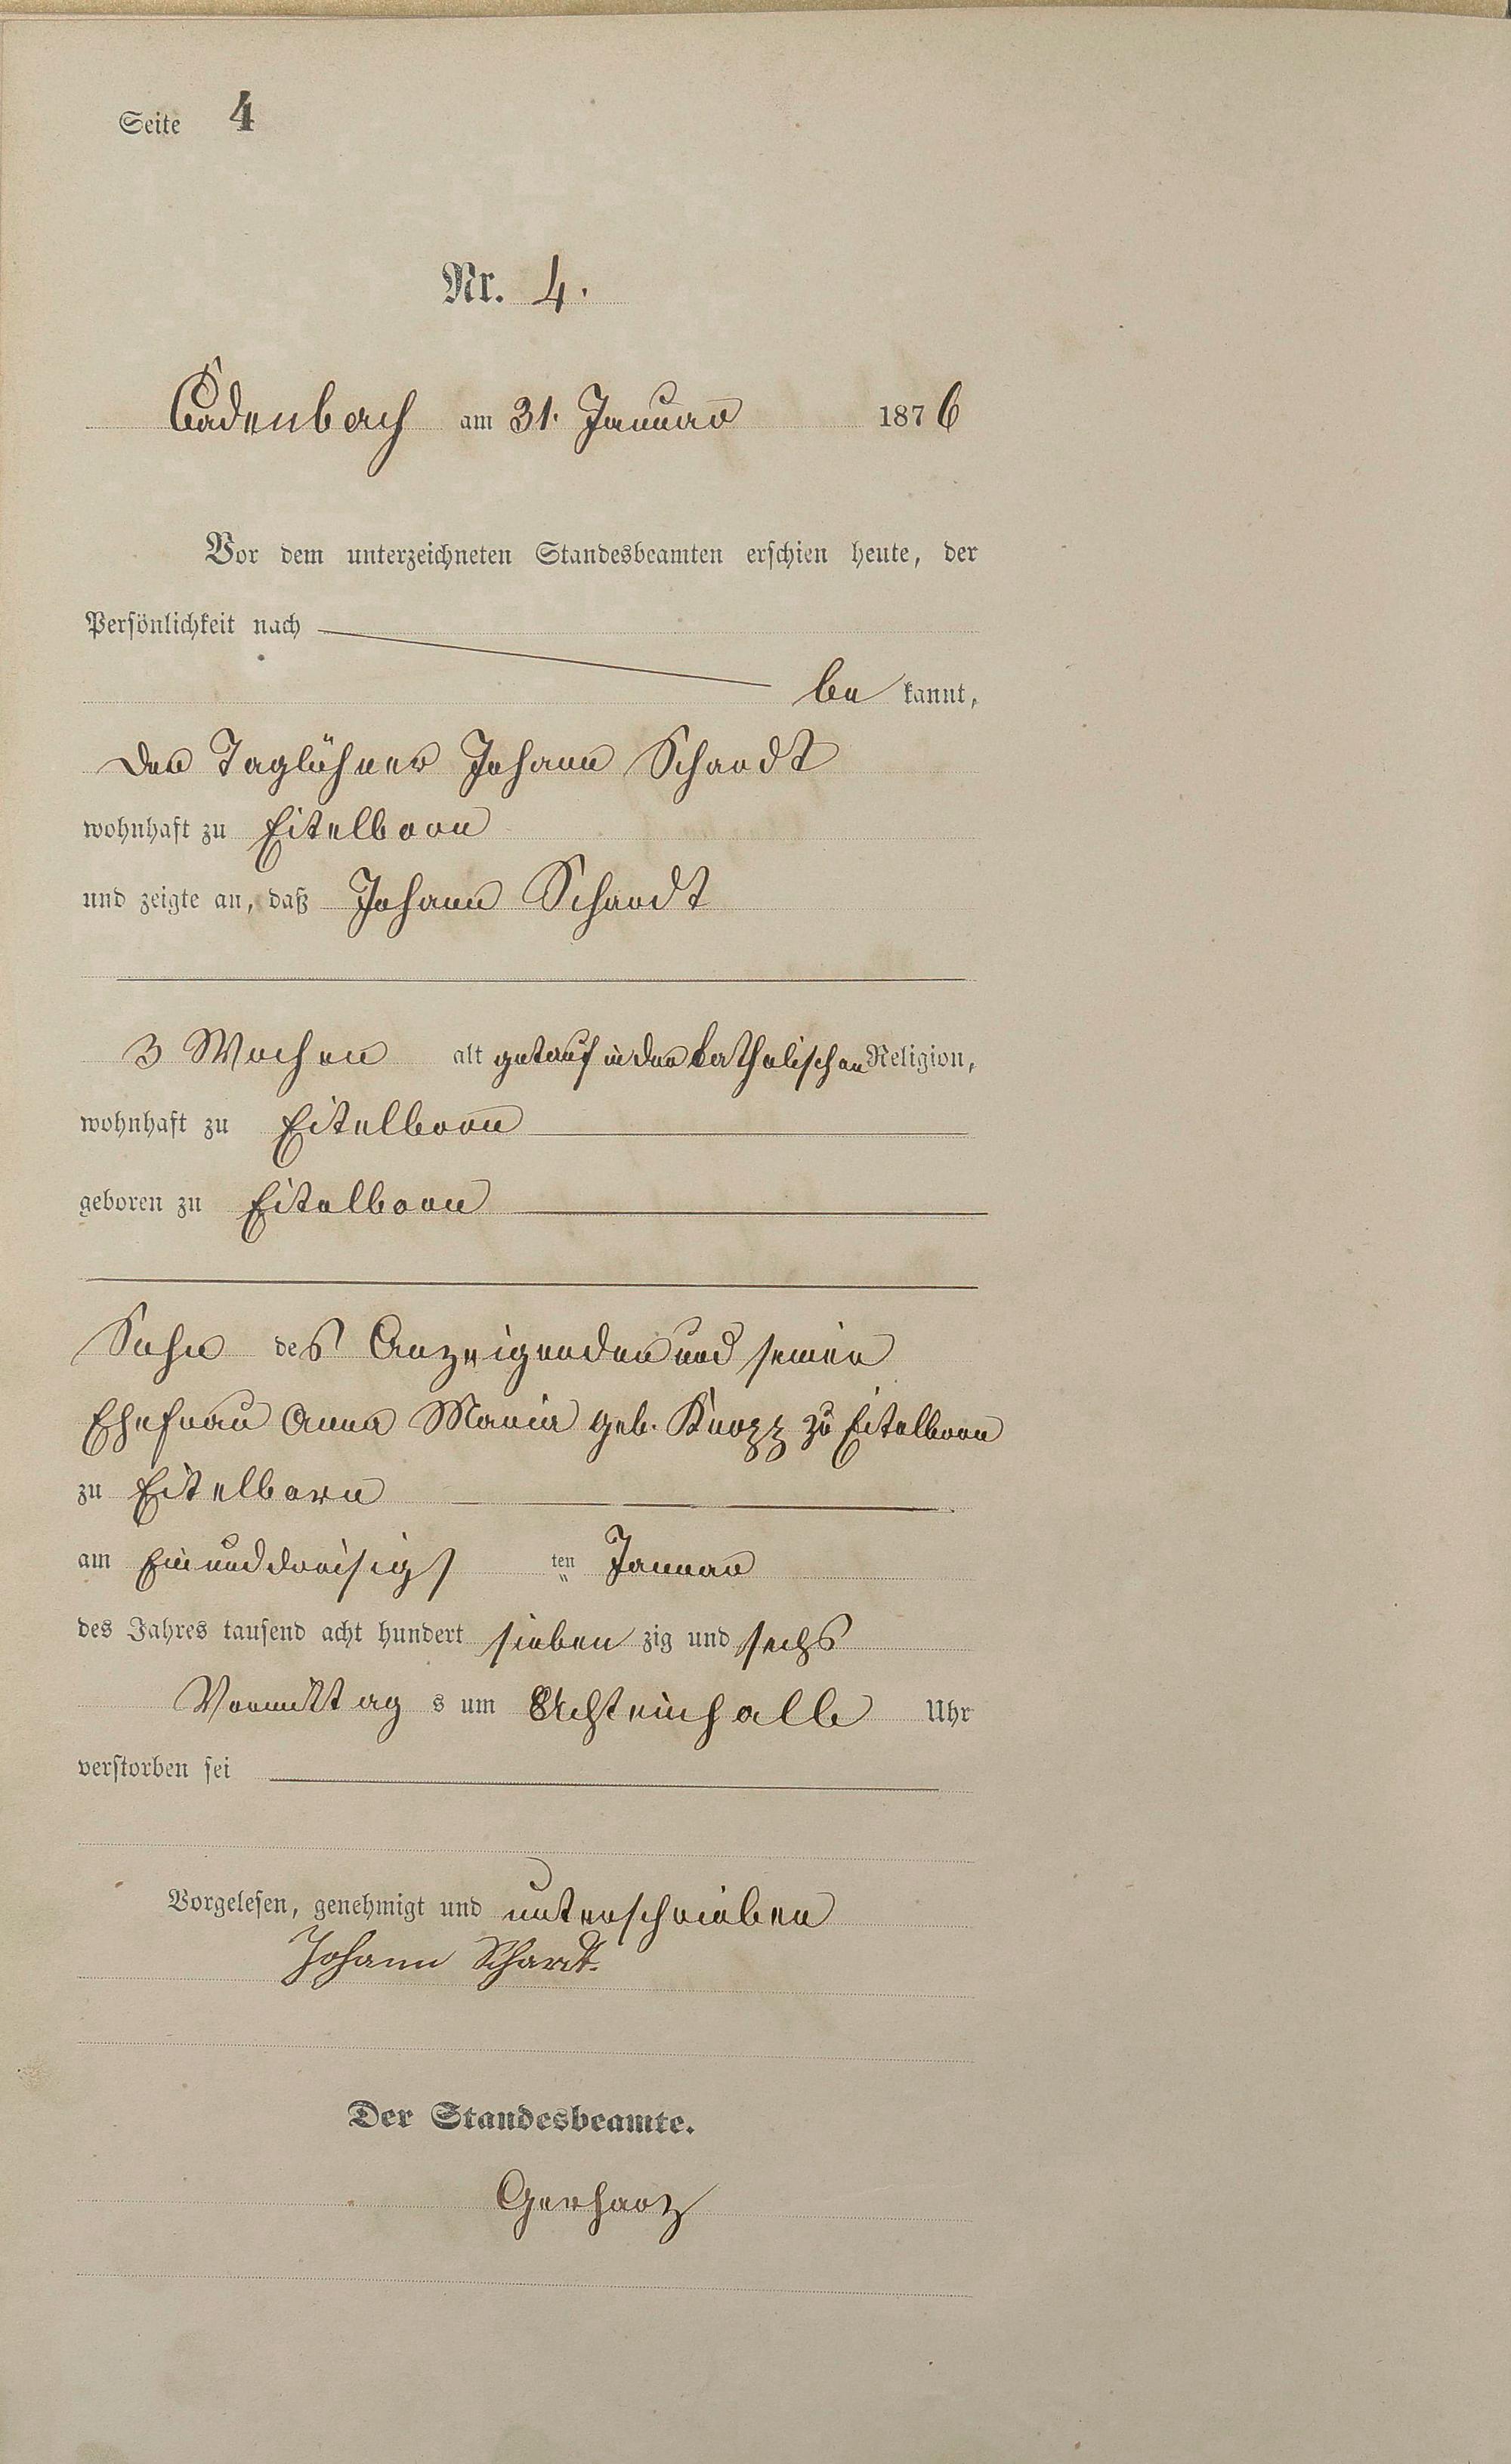 Seite 4
Nr. 4.
Cadenbach am 31. Januar 1876
Vor dem unterzeichneten Standesbeamten erschien heute, der
Persönlichkeit nach
be kannt,
der Taglöhner Johann Schardt
wohnhaft zu Eitelborn
und zeigte an, daß Johann Schardt
3 Wochen alt getauf in der katholischen Religion,
wohnhaft zu Eitelborn
geboren zu Eitelborn
Sohn des Anzeigenden und seiner
Ehefrau Anna Maria geb. zu Eitelborn
zu Eitelborn
am Einunddreisigs ten Januar
des Jahres tausend acht hundert sieben zig und sechs
Vormittag s um Achteinhalb Uhr
verstorben sei
Vorgelesen, genehmigt und unterschrieben
Johann Schardt.
Der Standesbeamte.
Gerharz